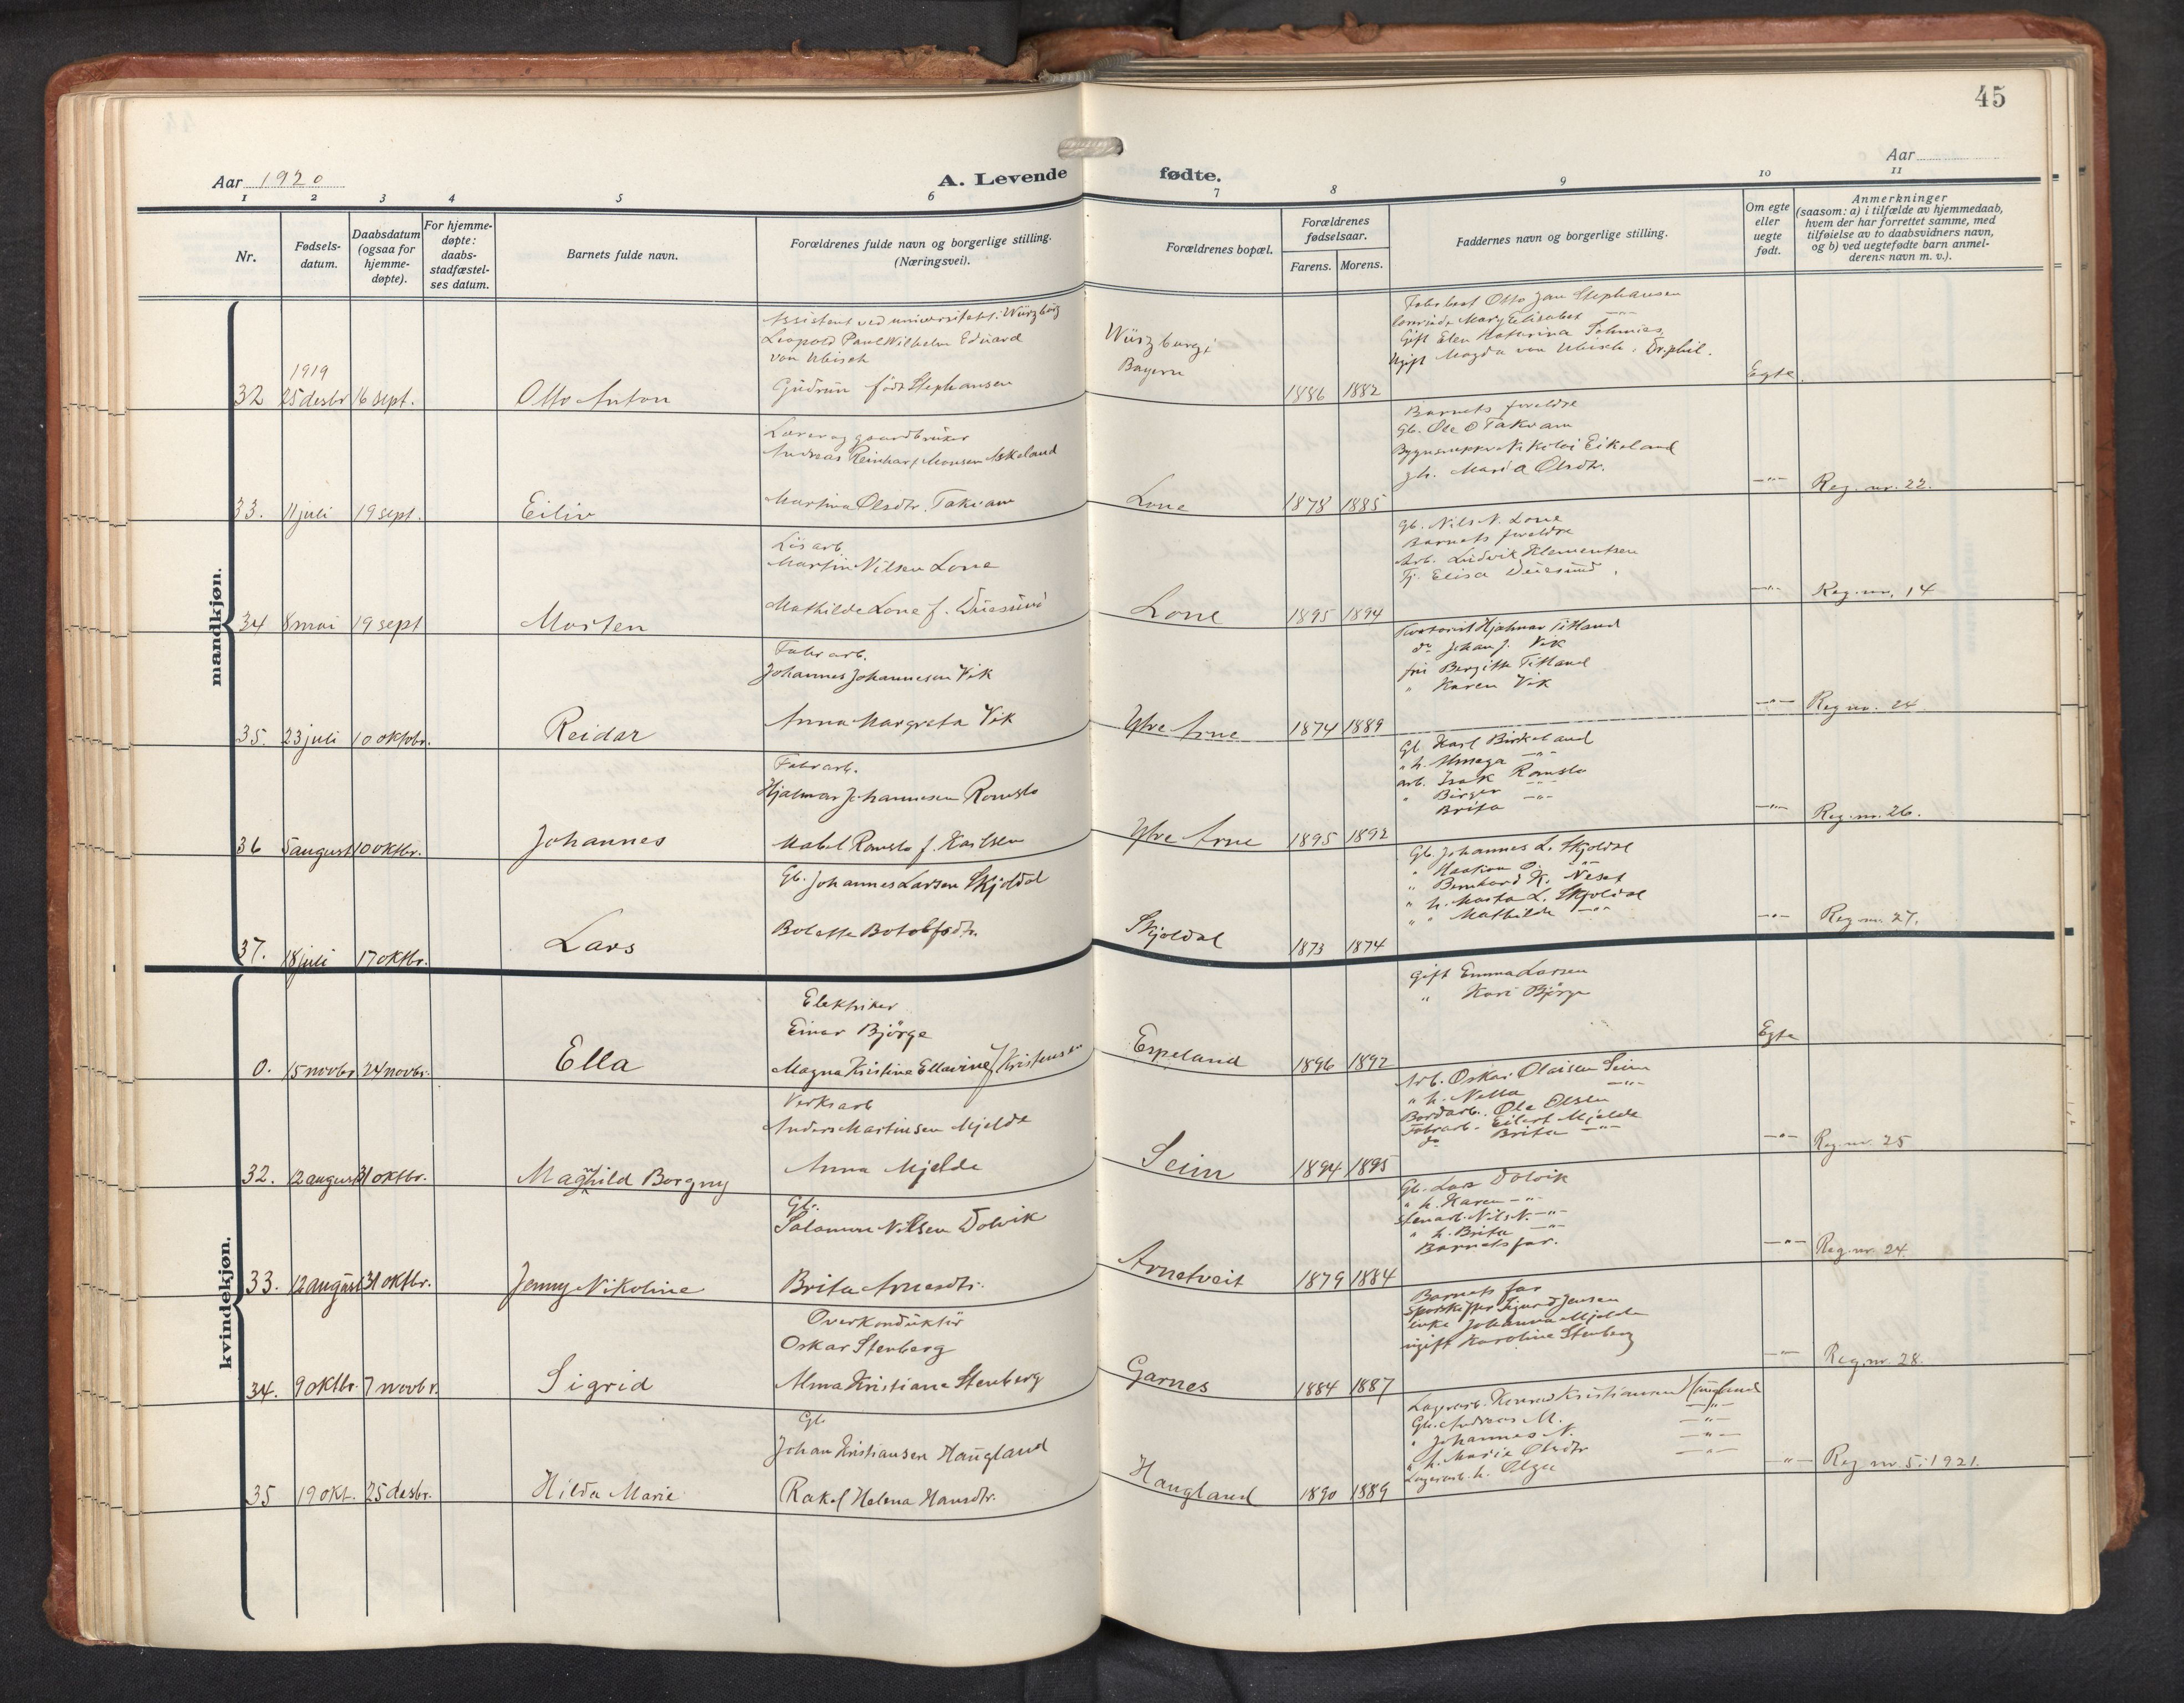 45
Aar 1920
A. Levende fødte.
Aar
1 2 3 4 5 6 7 8 9 10 11
Nr.
Fødsels-
datum.
Daabsdatum
(ogsaa for
hjemme-
døpte).
For hjemme-
døpte:
daabs-
stadfæstel-
ses datum.
Barnets fulde navn.
Forældrenes fulde navn og borgerlige stilling.
(Næringsvei).
Forældrenes bopæl.
Forældrenes
fødselsaar.
Farens. Morens.
Faddernes navn og borgerlige stilling.
Om egte
eller
uegte
født.
Anmerkninger
(saasom: a) i tilfælde av hjemmedaab,
hvem der har forrettet samme, med
tilføielse av to daabsvidners navn,
og b) ved uegtefødte barn anmel-
derens navn m. v.).
mandkjøn.
32 1919 25 desbr 16 sept.
Otto Anton
Assistent ved universitetet i Würzburg
Leopold Paul Wilhelm Eduard
von Ubisch
Gudrun født Stephansen
Würzburg i
Bayern
1886 1882
Otto Jan Stephansen
Mary Elisabet -"-
Gift Elen Katarina Schmies
Ugift Magda von Ubisch, Dr. phil.
Egte.
33. 11 juli 19 sept.
Eiliv
Lærer og gaardbruker
Andreas Reinhart Monsen Askeland
Martina Olsdtr. Takvam
Lone
1878 1885
Barnets foreldre
Gb. Ole O Takvam
Nikolai Eikeland
Maria Olsdtr.
-"- Reg. nr. 22.
34 8 mai 19 sept
Morten
Lis arb.
Martin Nilsen Lone
Mathilde Lone f.
Lone
1895 1894
Gb. Nils N. Lone
Barnets foreldre
Arb. Ludvik Klementsen
Tj. Elisa
-"- Reg. nr. 14
35. 23 juli 10 oktobr.
Reidar
Fabr arb.
Johannes Johannesen Vik
Anna Margreta Vik
Ytre Arne
1874 1889
Hjalmar Titland
do Johan J. Vik
frk Bergitte Titland
" Karen Vik
-"- Reg nr. 24
36 5 august 10 oktbr.
Johannes
Fabr arb.
Hjalmar Johannesen Romslo
Mabel Romslo f. Karlsen
Ytre Arne
1895 1892
Gb. Karl Birkeland
" h. -"-
arb. Isak Romslo
" Birger -"-
Brita -"-
-"- Reg. nr. 26.
37. 18 juli 17 oktbr.
Lars
Gb. Johannes Larsen Skjoldal
Bolette Botolfsdtr.
Skjoldal
1873 1874
Gb. Johannes L. Skjoldal
" Haakon O. -"-
" Bernhard K. Neset
" h. Marta L. Skjoldal
" " Mathilde -"-
-"- Reg nr. 27.
kvindekjøn.
0. 15 novbr 24 novbr.
Ella
Elektriker
Einar Björge
Magna Kristine Ellavine f Kristensen
Espeland
1896 1892
Gift Emma Larsen
" Kari Björge
Egte
32. 12 august 31 oktbr.
Magnhild Borgny
Verksarb
Anders Martinsen Mjelde
Anna Mjelde
Seim
1894 1895
Arb. Oskar Olaisen Seim
" h. Nella -"-
Bordarb. Ole Olsen
Fabrarb. Eilert Mjelde
do Brita -"-
-"- Reg. nr. 25
33. 12 august 31 oktbr.
Jenny Nikoline
Gb.
Salamon Nilsen Dolvik
Brita Arnesdtr.
Arnetveit
1879 1884
Gb. Lars Dolvik
" h. Karen -"-
stenarb. Nils N. -"-
" h. Brita -"-
Barnets far.
-"- Reg. nr. 24
34. 9 oktbr. 7 novbr.
Sigrid
Overkonduktör
Oskar Stenberg
Alma Kristiane Stenberg
Garnes
1884 1887
Barnets far
Sporskifter Sigurd Jensen
enke Johanna Mjelde
ugift Karoline Stenberg
-"- Reg. nr. 28.
35 19 okt. 25 desbr.
Hilda Marie
Gb
Johan Kristiansen Haugland
Rakel Helena Hansdtr.
Haugland
1890 1889
Lagerarb. Konrad Kristiansen Haugland
Gb. Andreas M. -"-
" Johannes N. -"-
" h. Marie Olsdtr -"-
Lagerarb. h. Olga
-"- Reg nr. 5. i 1921.